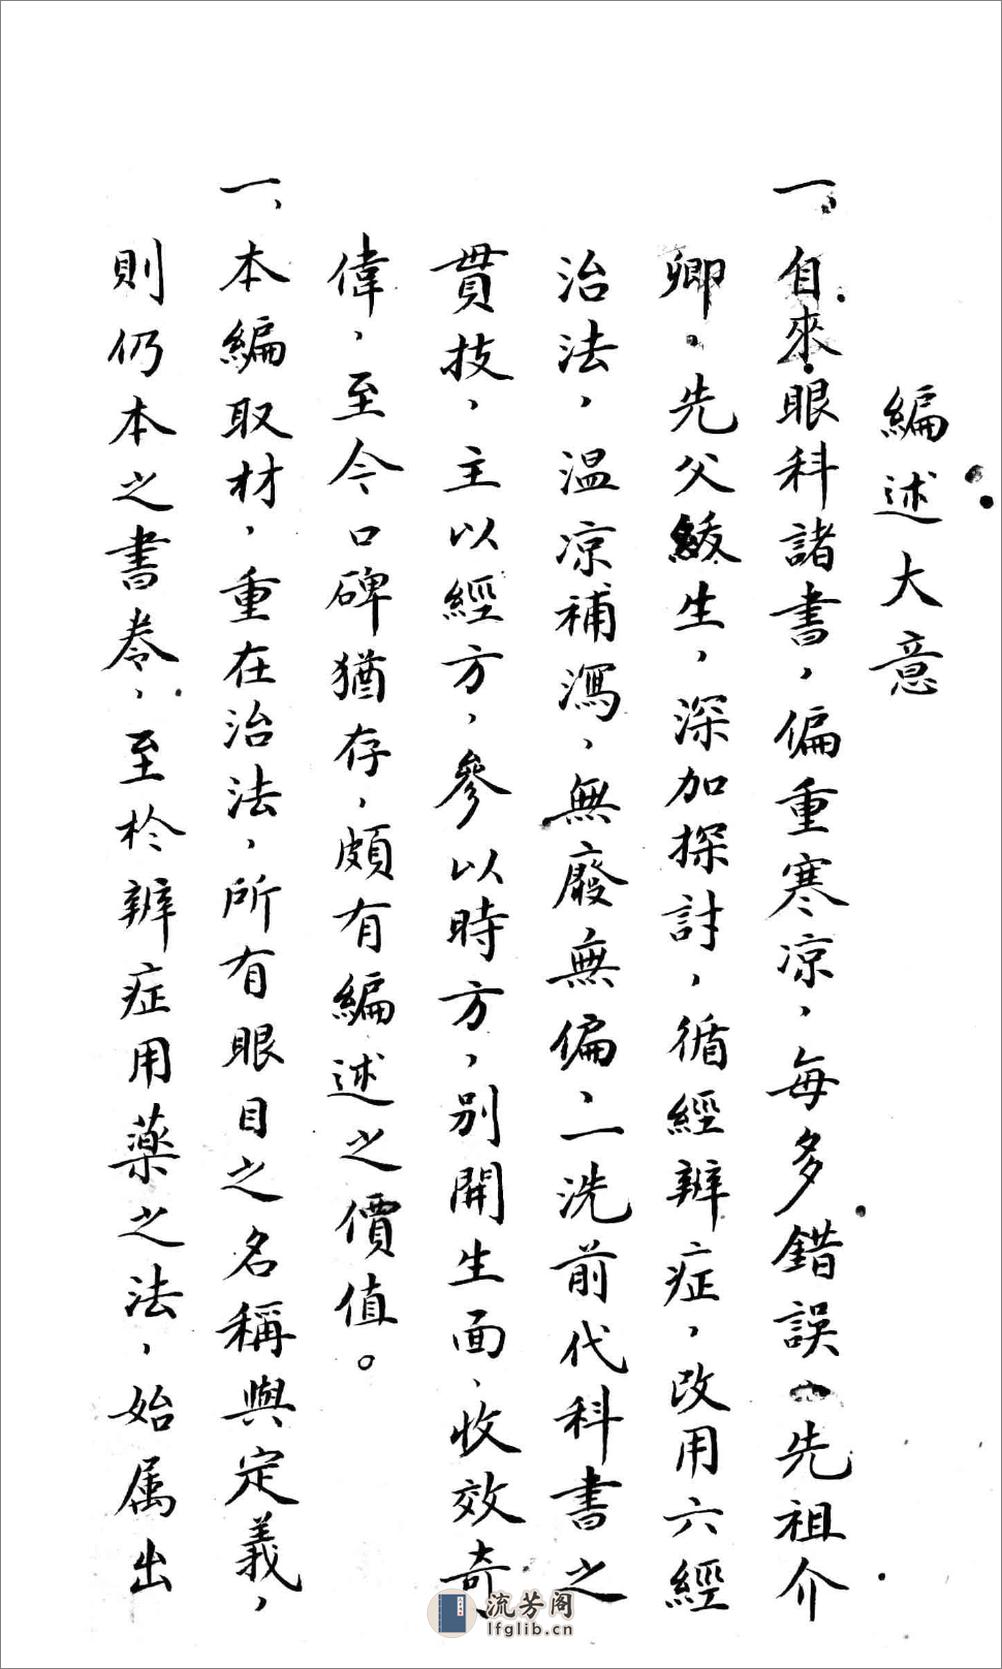 編述大意
一、自來眼科諸書，偏重寒凉，每多錯誤。先祖介
卿。先父綏生，深加探討，循經辨症，改用六經
治法，温凉補瀉，無廢無偏，一洗前代科書之
貫技，主以經方，參以時方，別開生面，收效奇
偉，至今口碑猶存，頗有編述之價值。
一、本編取材，重在治法，所有眼目之名稱與定義，
則仍本之書卷，至於辨症用藥之法，始属出
流芳阁
lfglib.cn